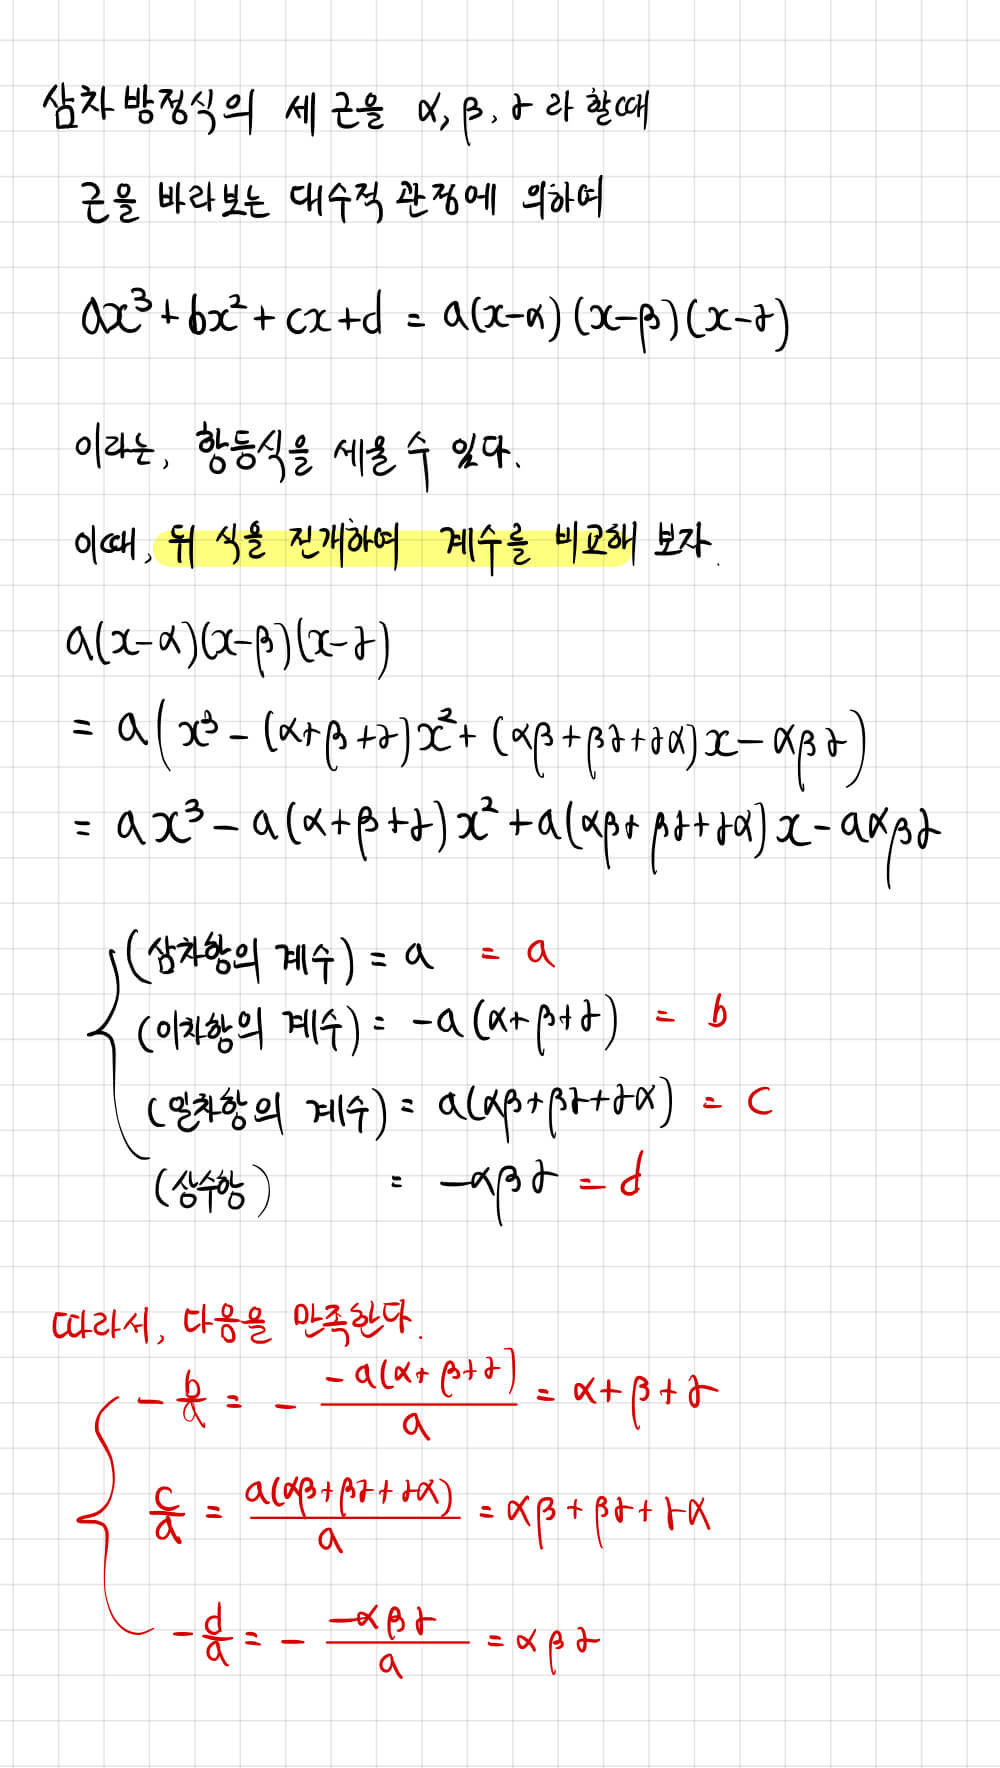 삼차방정식의 세 근을 α, β, γ 라 할때
근을 바라보는 대수적 관점에 의하여
ax³+bx²+cx+d = a(x-α)(x-β)(x-γ)
이라는, 항등식을 세울 수 있다.
이때, 뒤 식을 전개하여 계수를 비교해 보자.
a(x-α)(x-β)(x-γ)
= a(x³-(α+β+γ)x²+(αβ+βγ+γα)x-αβγ)
= ax³-a(α+β+γ)x²+a(αβ+βγ+γα)x-aαβγ
(삼차항의 계수) = a = a
(이차항의 계수) = -a(α+β+γ) = b
(일차항의 계수) = a(αβ+βγ+γα) = c
(상수항) = -αβγ = d
따라서, 다음을 만족한다.
-b/a = - -a(α+β+γ)/a = α+β+γ
c/a = a(αβ+βγ+γα)/a = αβ+βγ+γα
-d/a = - -αβγ/a = αβγ